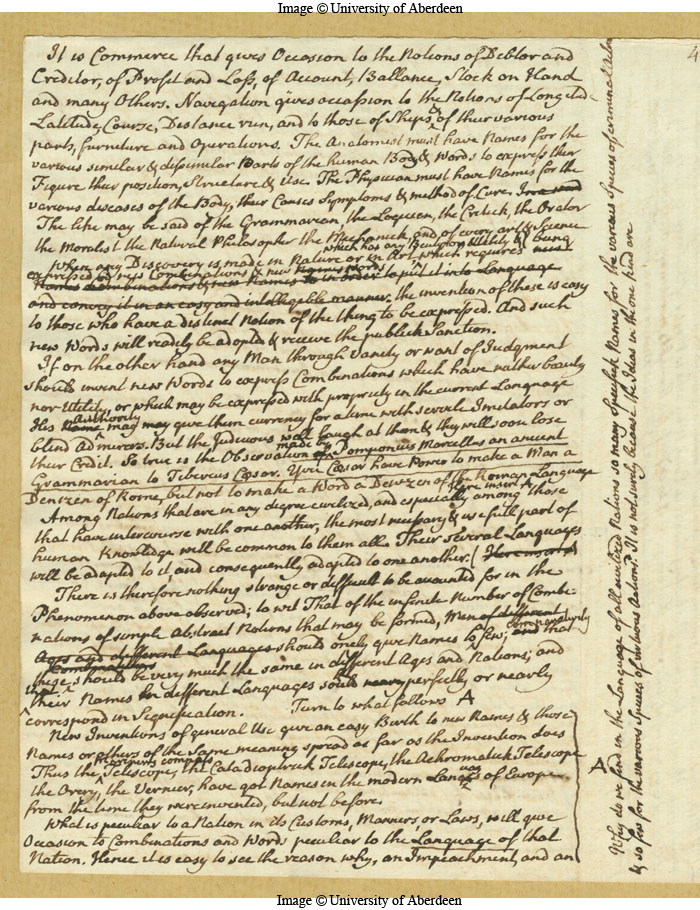 Image © University of Aberdeen
4
It is Commerce that gives Occasion to the Notions of Debtor and
Creditor, of Profit and Loss, of Account, Ballance, Stock on Hand
and many Others. Navigation gives occasion to the Notions of Longitude
Latitude, Course, Distance run, and to those of Ships & of their various
parts, furniture and Operations. The Anatomist must have Names for the
various similar & dissimilar Parts of the human Body & Words to express their
Figure their position, Structure & Use. The Physician must have Names for the
various diseases of the Body, their Causes Symptoms & method of Cure.
The like may be said of the Grammarian, the Logician, the Critick, the Orator
the Moralist the Natural Philosopher the Mechanick, and of every art & Science
which has any Beauty or Utility & being
When any Discovery is made in Nature or in Art, which requires
expressed new Combinations & new Names Words
Names Combinations & new Names to in order to put it into Language
and convey it in an easy and intelligible manner. the invention of these is easy
to those who have a distinct Notion of the thing to be expressed. And such
new Words will readily be adopted & receive the publick Sanction.
If on the other hand any Man through Vanity or want of Judgment
should invent new Words to express Combinations which have neither beauty
nor Utility, or which may be expressed with propriety in the current Language
Authority
His Name may give them currency for a time with servile Imitators or
blind Admirers. But the Judicious will laugh at them & they will soon lose
made by
their Credit. So true is the Observation of Pomponius Marcellus an ancient
Grammarian to Tiberius Cæsar. You Cæsar have Power to make a Man a
Denizen of Rome, but not to make a Word a Denizen of the Roman Language
Here insert A
Among Nations that are in any degree civilized, and especially among those
that have intercourse with one another, the most necessary & usefull part of
human Knowledge will be common to them all. Their several Languages
will be adapted to it, and consequently adapted to one another. (Here insert A
There is therefore nothing strange or difficult to be accounted for in the
Phenomenon above observed; to wit That of the infinite Number of Combi-
nations of simple Abstract Notions that may be formed, Men of different
comparatively
Ages and different Languages should onely give Names to few; and that
Combinations
these should be very much the same in different Ages and Nations; and
that
their Names in different Languages should be perfectly or nearly
correspond in Signification. Turn to what follows A
New Inventions of general Use give an easy Birth to new Names & those
Names or others of the Same meaning spread as far as the Invention does
Mariners compass
Thus the Telescope, the Catadioptrick Telescope, the Achromatick Telescope
the Orery, the Vernier, have got Names in the modern Languages of Europe
from the time they were invented, but not before.
What is peculiar to a Nation in its Customs, Manners, or Laws, will give
Occasion to Combinations and Words peculiar to the Language of that
Nation. Hence it is easy to see the reason why, an Impeachment, and an
A
Why do we find in the Language of all civilized Nations so many Specifick Names for the various Species of criminal Actions
& so few for the various Species of virtuous Actions? It is not surely because the Ideas in the one kind are
Image © University of Aberdeen